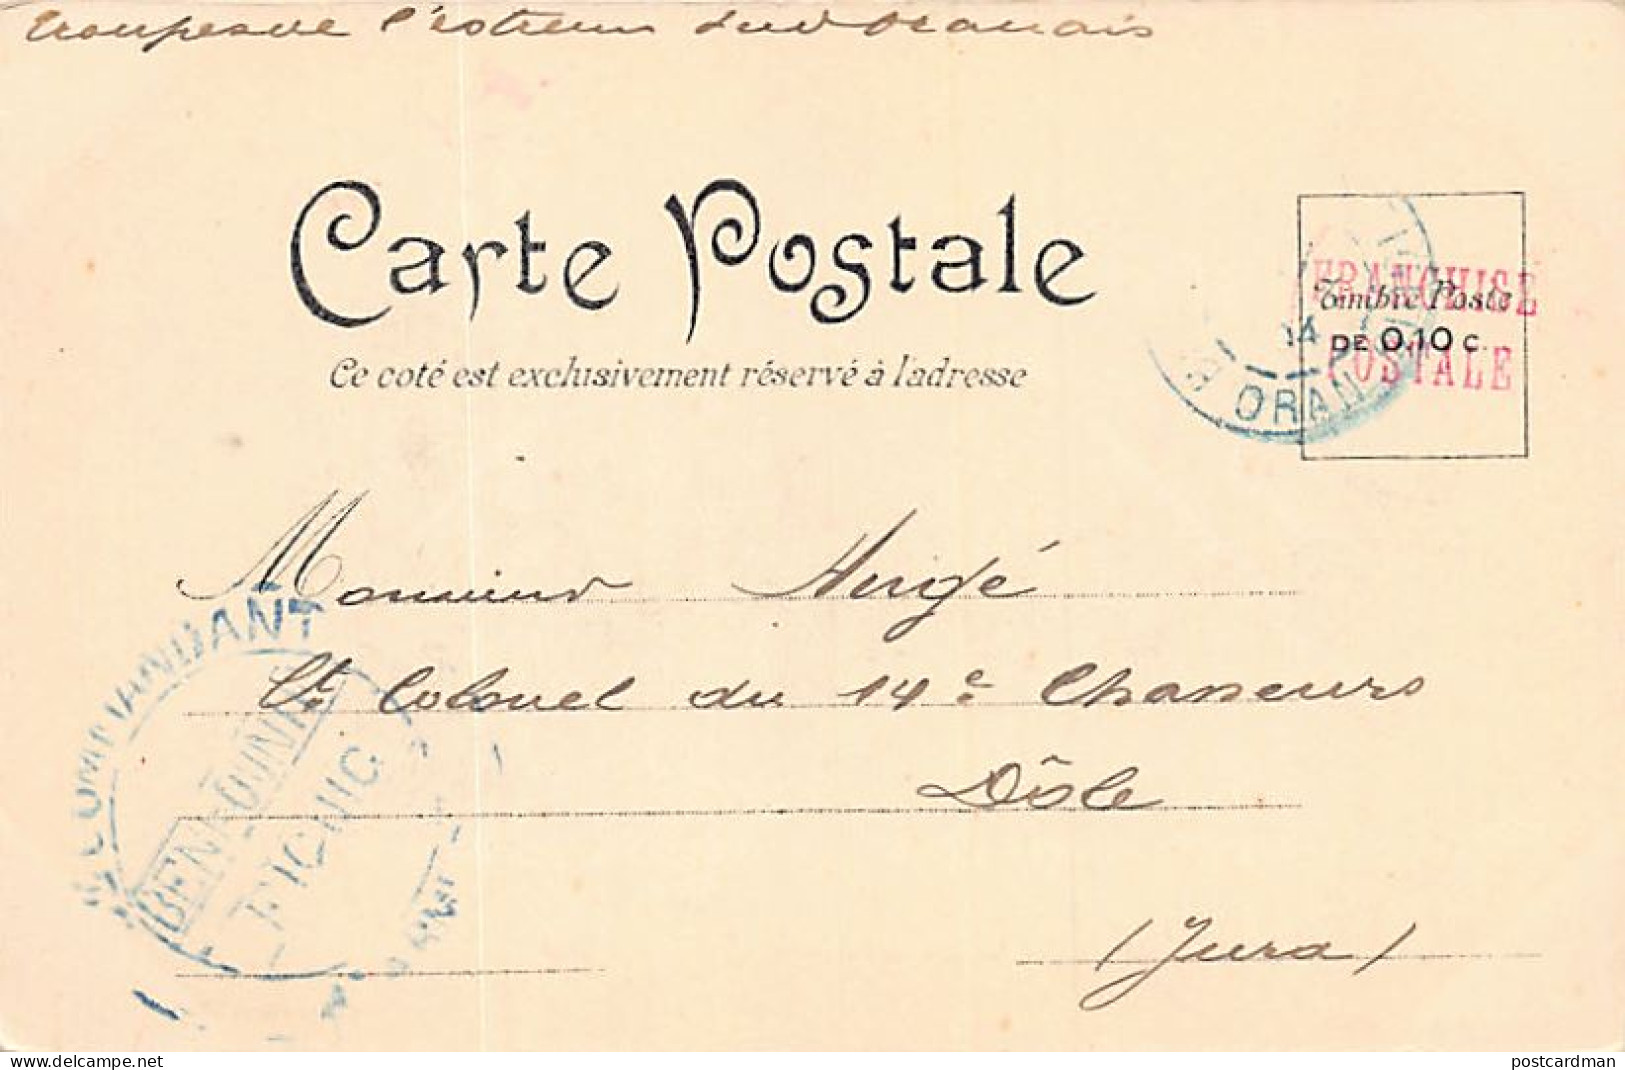 Troupes de l'extrême Sud Oranais
Carte Postale
Ce coté est exclusivement réservé à l'adresse
FRANCHISE
Timbre Poste
DE 0.10 c.
POSTALE
ORAN
Monsieur
Lt Colonel du 14e Chasseurs
Dôle
(Jura)
COMMANDANT
BENI-OUNIF
FIGUIG
delcampe.net
postcardman